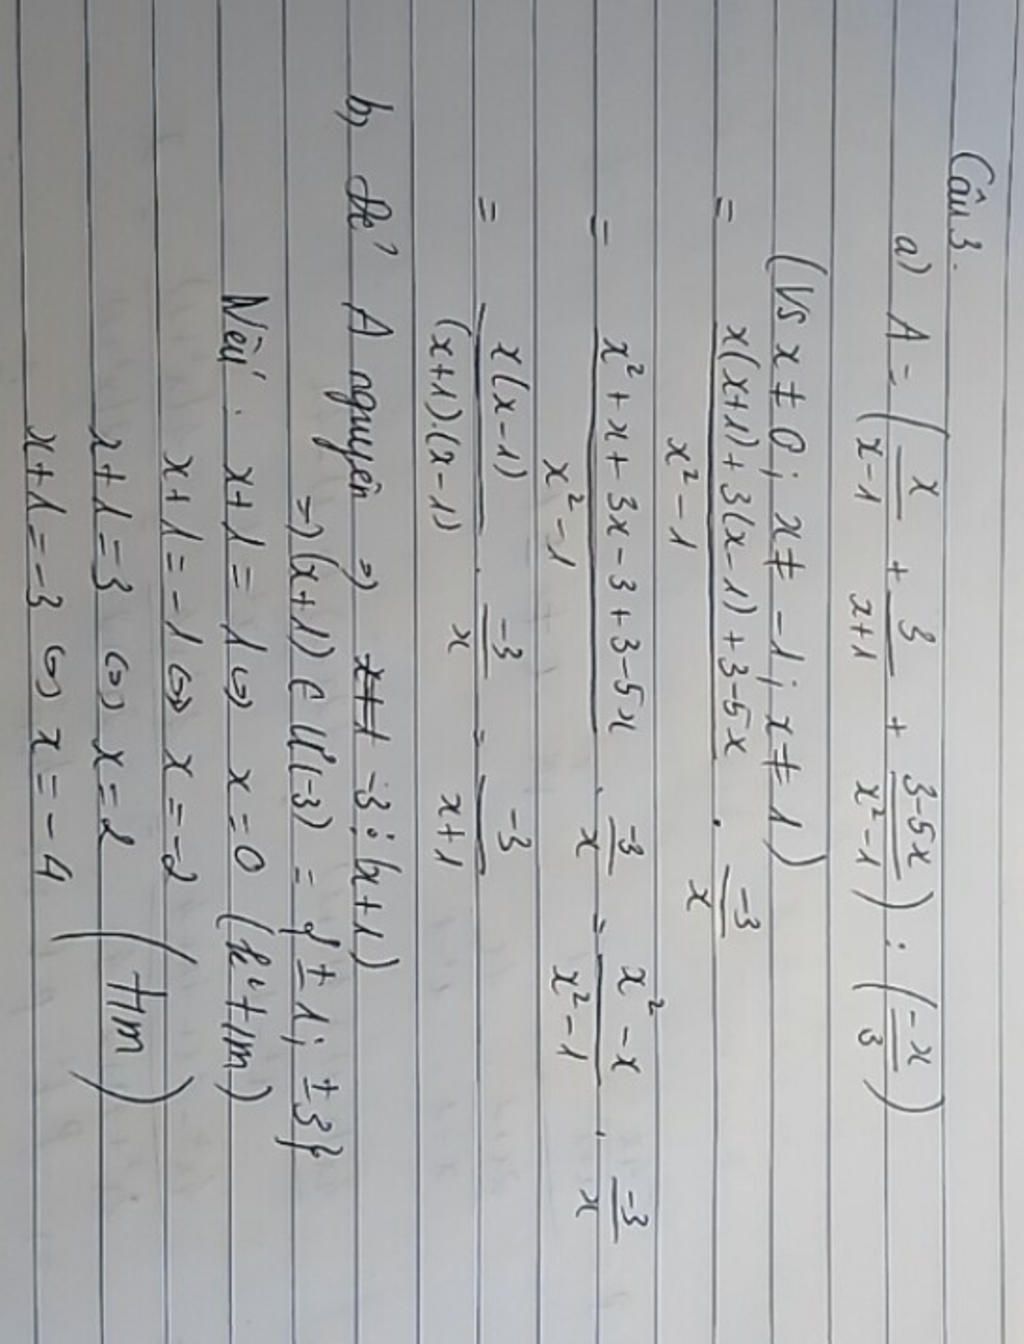 Câu 3.
a) A = (x/(x-1) + 3/(x+1) + (3-5x)/(x²-1)) : (-x/3)
(Vs x ≠ 0; x ≠ -1; x ≠ 1)
= (x(x+1)+3(x-1)+3-5x)/(x²-1) . (-3)/x
= (x²+x+3x-3+3-5x)/(x²-1) . (-3)/x = (x²-x)/(x²-1) . (-3)/x
= (x(x-1))/((x+1).(x-1)) . (-3)/x = (-3)/(x+1)
b, Để A nguyên => -3 ⋮ (x+1)
=> (x+1) ∈ Ư(-3) = {±1; ±3}
Nếu . x+1 = 1 <=> x = 0 (k° t/m)
x+1 = -1 <=> x = -2
x+1 = 3 <=> x = 2 (t/m)
x+1 = -3 <=> x = -4